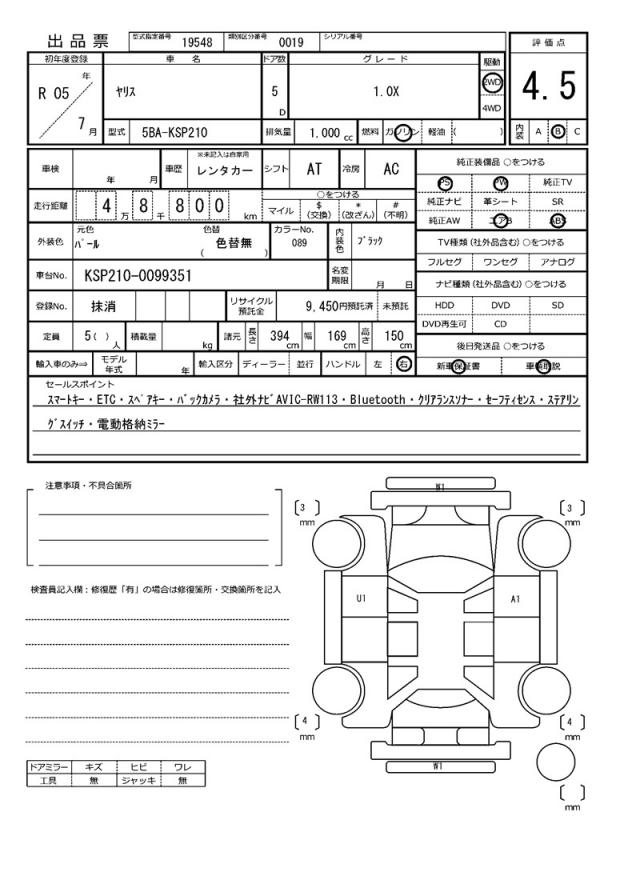 出品票 型式指定番号 19548 類別区分番号 0019 シリアル番号
初年度登録 車名 ドア数 グレード 駆動 評価点
R 05 年 7 月 ヤリス 5 D 1.0X 2WD 4WD 4.5
型式 5BA-KSP210 排気量 1.000 cc 燃料 ガソリン 軽油 ( ) 内装 A B C
車検 年 月 車歴 ※未記入は自家用 レンタカー シフト AT 冷房 AC 純正装備品 ○をつける
PS PW 純正TV
走行距離 4 万 8 千 8 0 0 km ○をつける
マイル $ (交換) * (改ざん) # (不明)
純正ナビ 革シート SR
純正AW エアB ABS
外装色 元色 パール 色替 ( 色替無 ) カラーNo. 089 内装色 ブラック
TV種類 (社外品含む) ○をつける
フルセグ ワンセグ アナログ
車台No. KSP210-0099351 名変期限 月 日
ナビ種類 (社外品含む) ○をつける
登録No. 抹消 リサイクル預託金 9,450円預託済 未預託
HDD DVD SD
DVD再生可 CD
定員 5 ( ) 人 積載量 kg 諸元 長さ 394 cm 幅 169 cm 高さ 150 cm
後日発送品 ○をつける
輸入車のみ⇒ モデル年式 年 輸入区分 ディーラー 並行 ハンドル 左 右
新車保証書 車輌取説
セールスポイント
スマートキー・ETC・スペアキー・バックカメラ・社外ナビAVIC-RW113・Bluetooth・クリアランスソナー・セーフティセンス・ステアリン
グスイッチ・電動格納ミラー
注意事項・不具合箇所
検査員記入欄：修復歴「有」の場合は修復箇所・交換箇所を記入
W1
[ 3 ] mm [ 3 ] mm
U1 A1
[ 4 ] mm [ 4 ] mm
W1
[ ] mm
ドアミラー キズ ヒビ ワレ
工具 無 ジャッキ 無